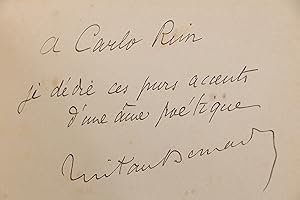 A Carlo Rim
je dédie ces purs accents
d'une âme poétique
Tristan Bernard